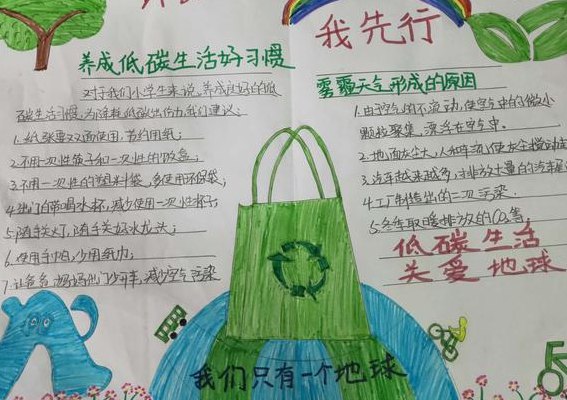 我先行
养成低碳生活好习惯
对于我们小学生来说,养成良好的低
碳生活习惯,为减耗低碳出份力,我们建议:
1.纸张要双面使用,节约用纸;
2.不用一次性筷子和一次性的饭盒;
3.不用一次性的塑料袋,多使用环保袋;
4.出门自带喝水杯,减少使用一次性杯子;
5.随手关灯,随手关好水龙头;
6.使用手帕,少用纸巾;
7.让爸爸妈妈他们少开车,减少空气污染
雾霾天气形成的原因
1.由于空气的不流动,使空气中的微小
颗粒聚集,漂浮在空气中.
2.地面灰尘大,人和车流使灰尘搅动
3.汽车越来越多,排放大量的汽车尾
4.工厂制造出的二次污染.
5.冬季取暖排放的CO2等;
低碳生活
关爱地球
我们只有一个地球